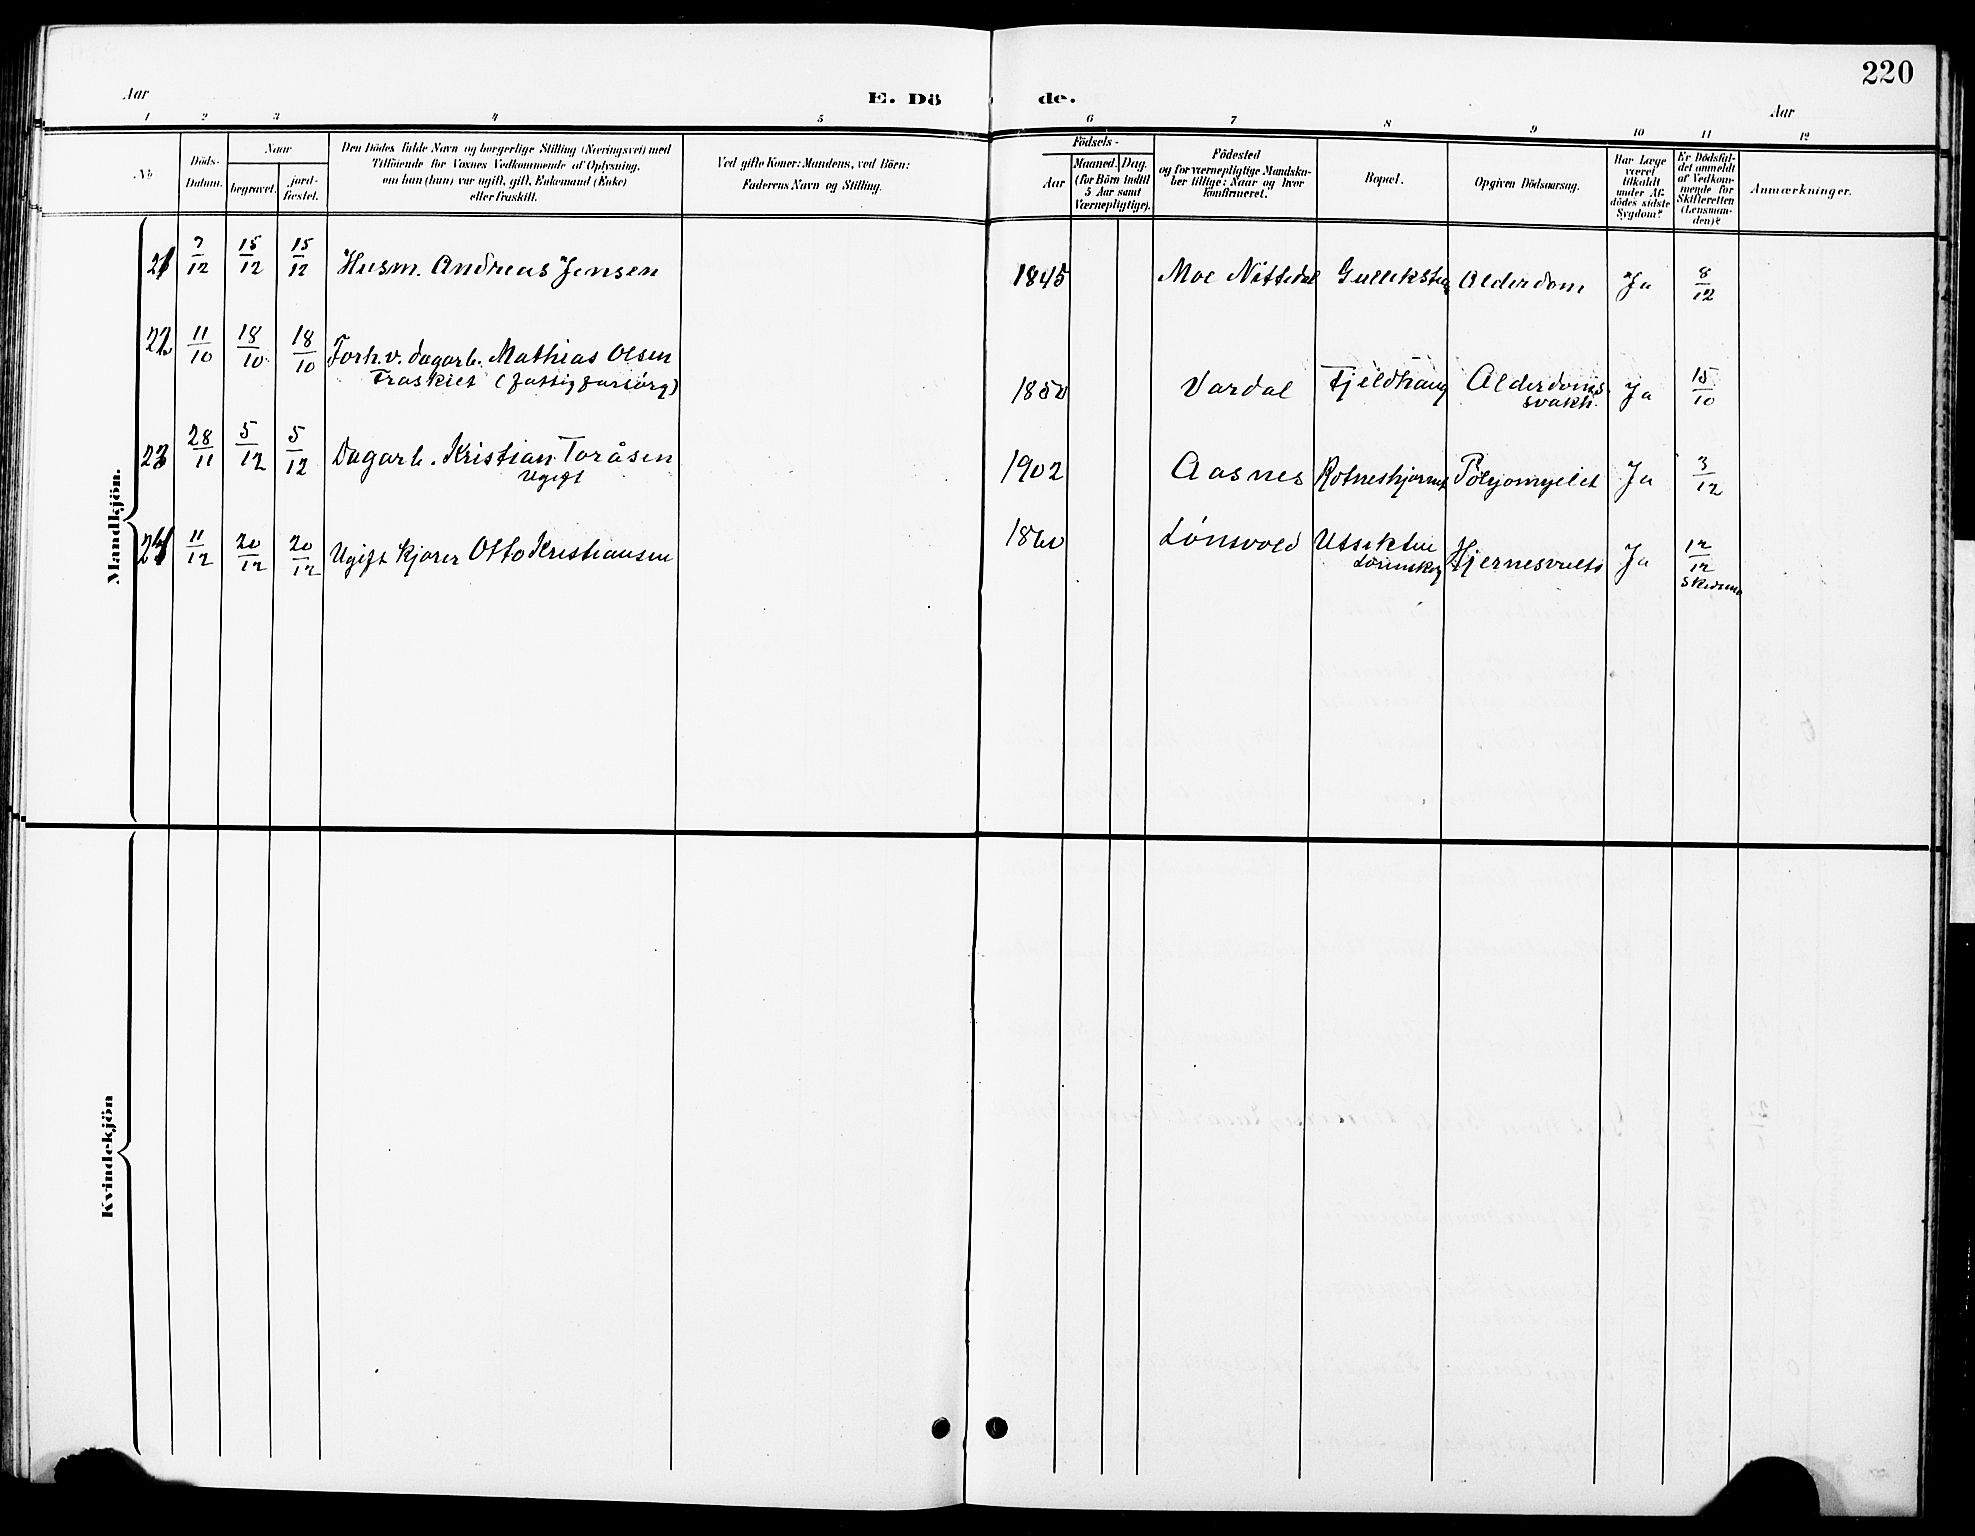 220
Aar
E. Dö de.
Aar
1 2 3 4 5 6 7 8 9 10 11 12
No
Döds-
Datum.
Naar
begravet.
jord-
fæstet.
Den Dödes fulde Navn og borgerlige Stilling (Næringsvei) med
Tilföiende for Voxnes Vedkommende af Oplysning,
om han (hun) var ugift, gift, Enkemand (Enke)
eller fraskilt.
Ved gifte Koner: Mandens, ved Börn:
Faderens Navn og Stilling.
Födsels-
Aar
Maaned. Dag.
(for Börn indtil
5 Aar samt
Værnepligtige).
Födested
og for værnepligtige Mandska-
ber tillige: Naar og hvor
konfirmeret.
Bopæl.
Opgiven Dödsaarsag.
Har Læge
været
tilkaldt
under Af-
dödes sidste
Sygdom?
Er Dödsfal-
det anmeldt
af Vedkom-
mende for
Skifteretten
(Lensman-
den)?
Anmærkninger.
Mandkjön.
21 7/12 15/12 15/12 Husm. Andreas Jensen 1845 Moe Nittedal Alderdom Ja 8/12
22 11/10 18/10 18/10 Forh.v. dagarb. Mathias Olsen
Traskiet (fattigforsörg) 1850 Vardal Fjeldhaug Alderdoms
svakh. Ja 15/10
23 28/11 5/12 5/12 Dagarb. Kristian Toråsen
Ugift 1902 Aasnes Rotneskjærnet Polyomyelit Ja 3/12
24 11/12 20/12 20/12 Ugift kjører Otto Kristiansen 1860 Lönsvold Utsikten
Lørenskog Ja 12/12
Skedsmo
Kvindekjön